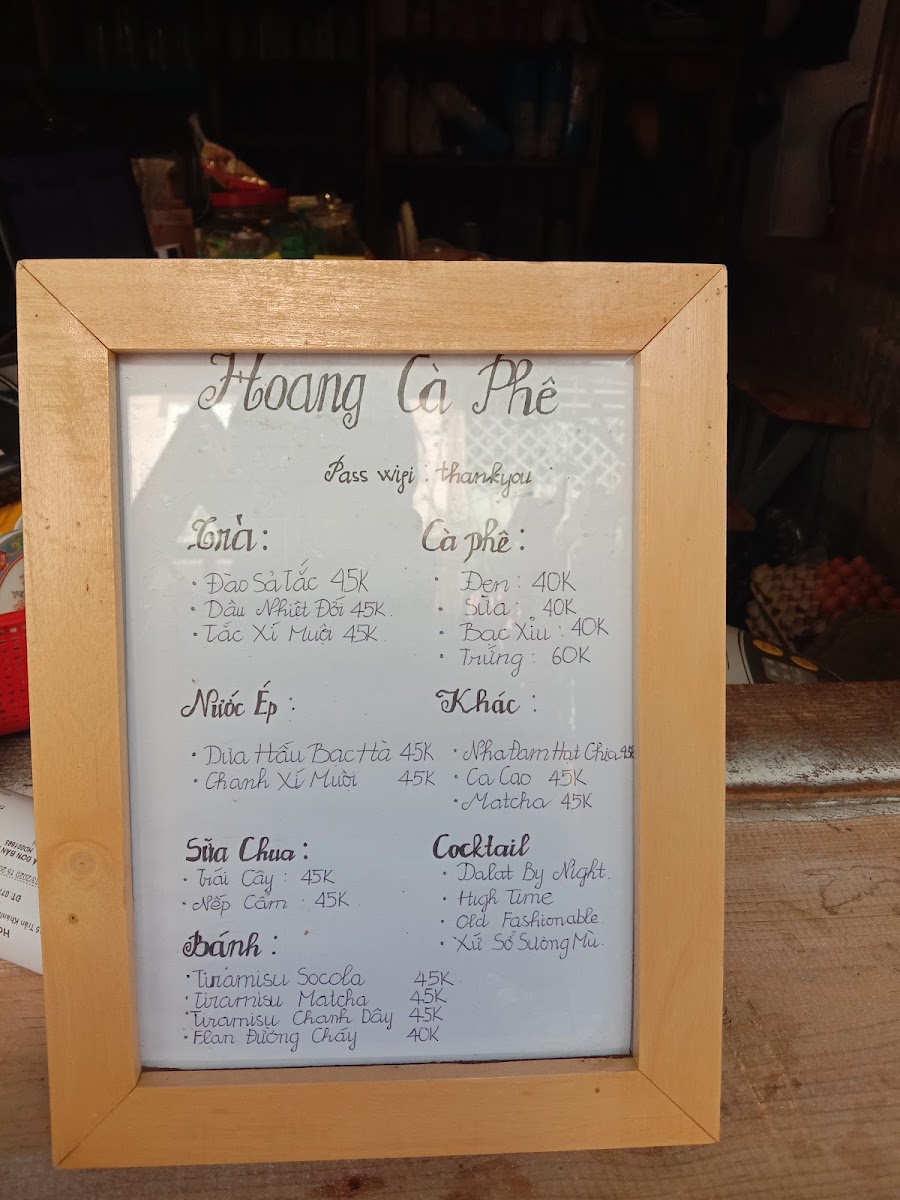 Hoang Cà Phê
Pass wifi : thankyou
Trà :
· Đào Sả Tắc 45K
· Dâu Nhiệt Đới 45K.
· Tắc Xí Muội 45K
Cà phê :
· Đen : 40K
· Sữa : 40K
· Bạc Xỉu : 40K
· Trứng : 60K
Nước Ép :
· Dưa Hấu Bạc Hà 45K
· Chanh Xí Muội 45K
Khác :
· Nha Đam Hạt Chia 45K
· Ca Cao 45K
· Matcha 45K
Sữa Chua :
· Trái Cây : 45K
· Nếp Cẩm : 45K
Cocktail
· Dalat By Night.
· High Time
· Old Fashionable
· Xứ Sở Sương Mù.
Bánh :
· Tiramisu Socola 45K
· Tiramisu Matcha 45K
· Tiramisu Chanh Dây 45K
· Flan Đường Cháy 40K